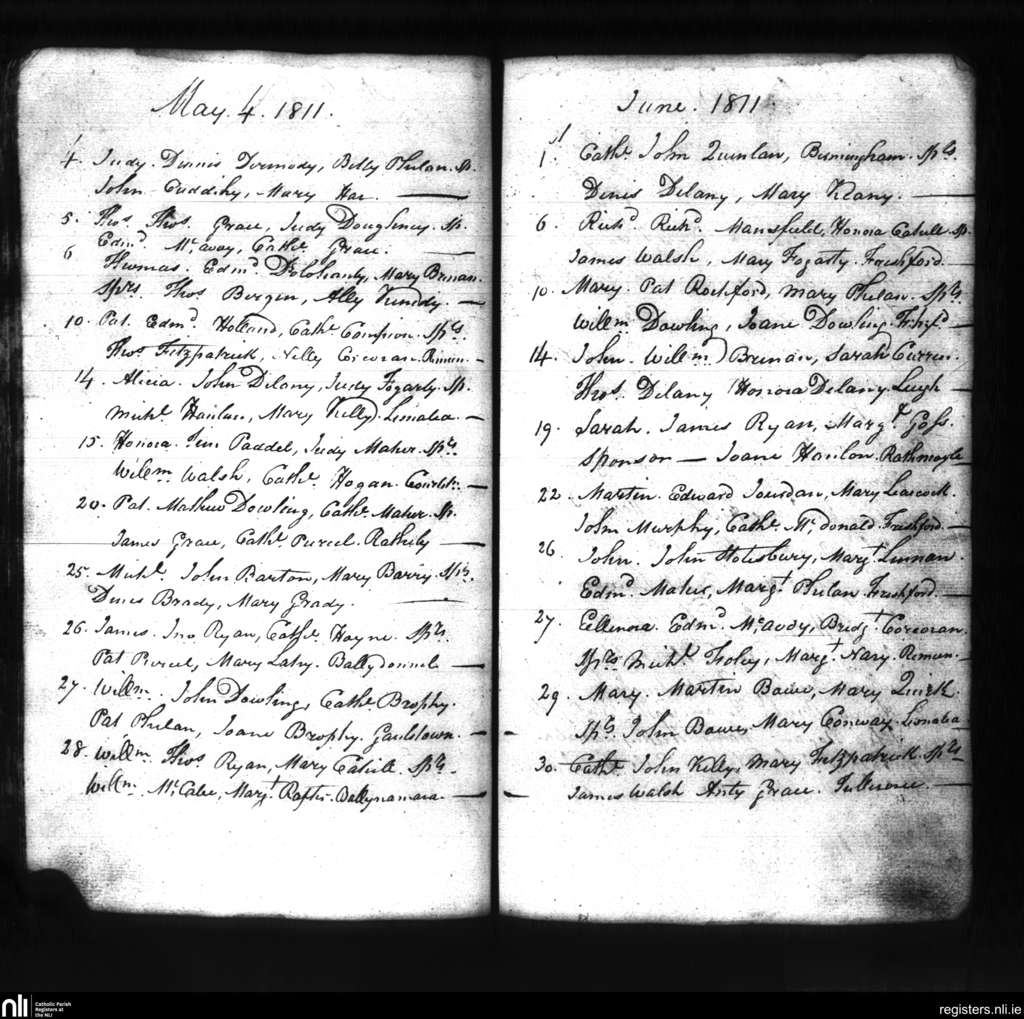 May. 4. 1811.
4. Judy. Dennis Dermody, Betty Phelan. Sp.
John Cuddihy, Mary
5. Thos. Thos. Grace, Judy Sp.
Edmd. McAvoy, Cathe. Grace.
6 Thomas. Edmd. Mary Brenan.
Sprs. Thos. Bergin, Ally
10. Pat. Edmd. Holland, Cathe. Spts.
Thos. Fitzpatrick, Nelly Corcoran.
14. Alicia. John Delany, Judy Fogarty. Sp.
Michl. Hanlon, Mary Kelly.
15. Honora. Jim Paddel, Judy Maher. Spts.
Willm. Walsh, Cathe. Hogan.
20. Pat. Mathew Dowling, Cathe. Maher. Sp.
James Grace, Cathe. Purcel.
25. Michl. John Barton, Mary Barry. Sps.
Denis Brady, Mary Grady.
26. James. Jno Ryan, Cathe. Hayne. Spts.
Pat Purcel, Mary
27. Willm. John Dowling, Cathe. Brophy.
Pat Phelan, Joane Brophy. Gaulstown.
28. Willm. Thos Ryan, Mary Cahill. Spts.
Willm. McCabe, Margt. Rafter. Ballynamara.
June. 1811.
1. Cathe. John Quinlan, Bermingham. Spts.
Denis Delany, Mary
6. Richd. Richd. Mansfield, Honora Cahill. Sp.
James Walsh, Mary Fogarty. Freshford.
10. Mary. Pat Rochford, Mary Phelan. Spts.
Willm. Dowling, Joane Dowling.
14. John. Willm. Brenan, Sarah Curren.
Thos. Delany Honora Delany.
19. Sarah. James Ryan, Margt. Goss.
Sponsor — Joane Hanlon. Rathmoyle
22. Martin. Edward Jourdan, Mary
John Murphy, Cathe. McDonald. Freshford.
26. John. John Margt. Lennan.
Edmd. Maher, Margt. Phelan Freshford.
27. Ellenora. Edmd. McAvoy, Bridgt. Corcoran.
Spts. Michl. Foley, Margt. Nary.
29. Mary. Martin Mary Quirk.
Spts. John Mary Conway.
30. Cathe. John Kelly, Mary Fitzpatrick. Spts
James Walsh Anty Grace.
nli
Catholic Parish
Registers at
the NLI
registers.nli.ie